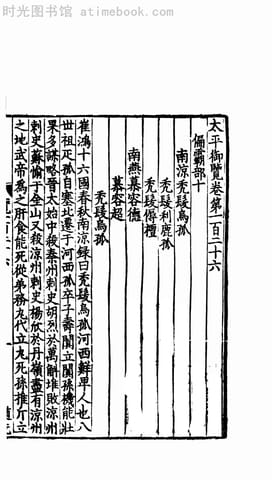 时光图书馆·atimebook.com
太平御覽卷第一百二十六
偏霸部十
南涼禿髮烏孤
禿髮利鹿孤
禿髮傉檀
南燕慕容德
慕容超
禿髮烏孤
崔鴻十六國春秋南涼録曰禿髮烏孤河西鮮卑人也八
世祖疋孤自塞北遷于河西孤卒子壽闐立闐孫機能壯
果多謀略晉太始中殺秦州刺史胡烈於萬斛堆敗涼州
刺史蘇愉于金山又殺涼州刺史楊欣於丹嶺盡有涼州
之地武帝爲之肝食能死從弟務丸代立丸死孫推斤立